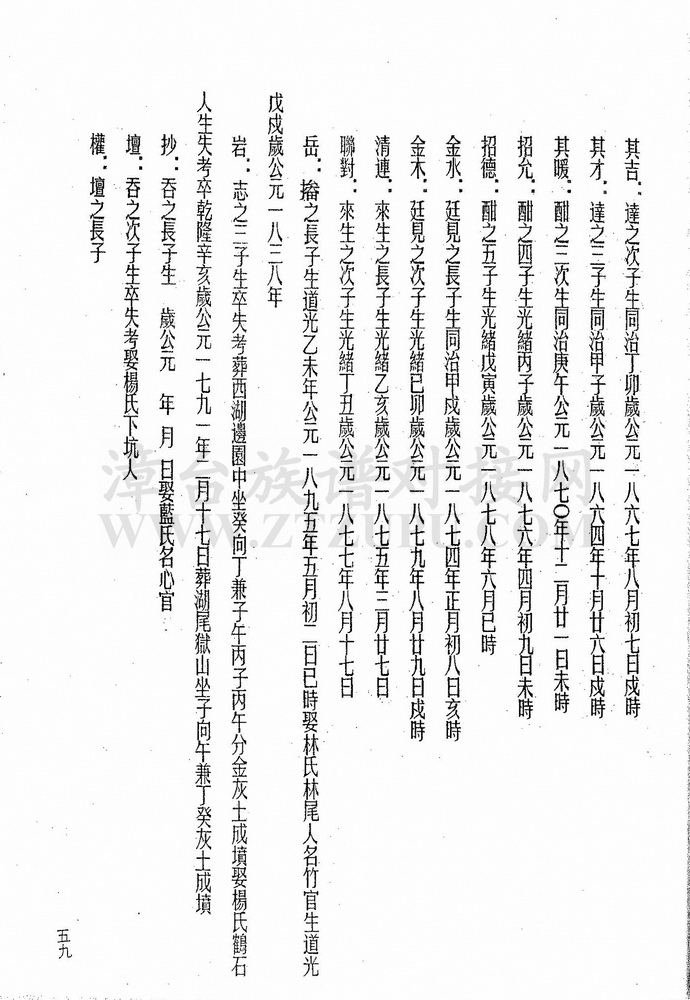 其吉：達之次子生同治丁卯歲公元一八六七年八月初七日戍時
其才：達之三子生同治甲子歲公元一八六四年十月廿六日戍時
其暖：酣之三次生同治庚午公元一八七〇年十二月廿一日未時
招允：酣之四子生光緒丙子歲公元一八七六年四月初九日未時
招德：酣之五子生光緒戊寅歲公元一八七八年六月已時
金水：廷見之長子生同治甲戍歲公元一八七四年正月初八日亥時
金木：廷見之次子生光緒已卯歲公元一八七九年八月廿九日戍時
清連：來生之長子生光緒乙亥歲公元一八七五年三月廿七日
聯對：來生之次子生光緒丁丑歲公元一八七七年八月十七日
岳：之長子生道光乙未年公元一八九五年五月初二日已時娶林氏林尾人名竹官生道光
戊戍歲公元一八三八年
岩：志之二子生卒失考葬西湖邊園中坐癸向丁兼子午丙子丙午分金灰土成墳娶楊氏鶴石
人生失考卒乾隆辛亥歲公元一七九一年二月十七日葬湖尾獄山坐子向午兼丁癸灰土成墳
抄：吞之長子生 歲公元 年 月 日娶藍氏名心官
壇：吞之次子生卒失考娶楊氏下坑人
權：壇之長子
五九
漳台族谱对接网
WWW.ZTZUPU.COM